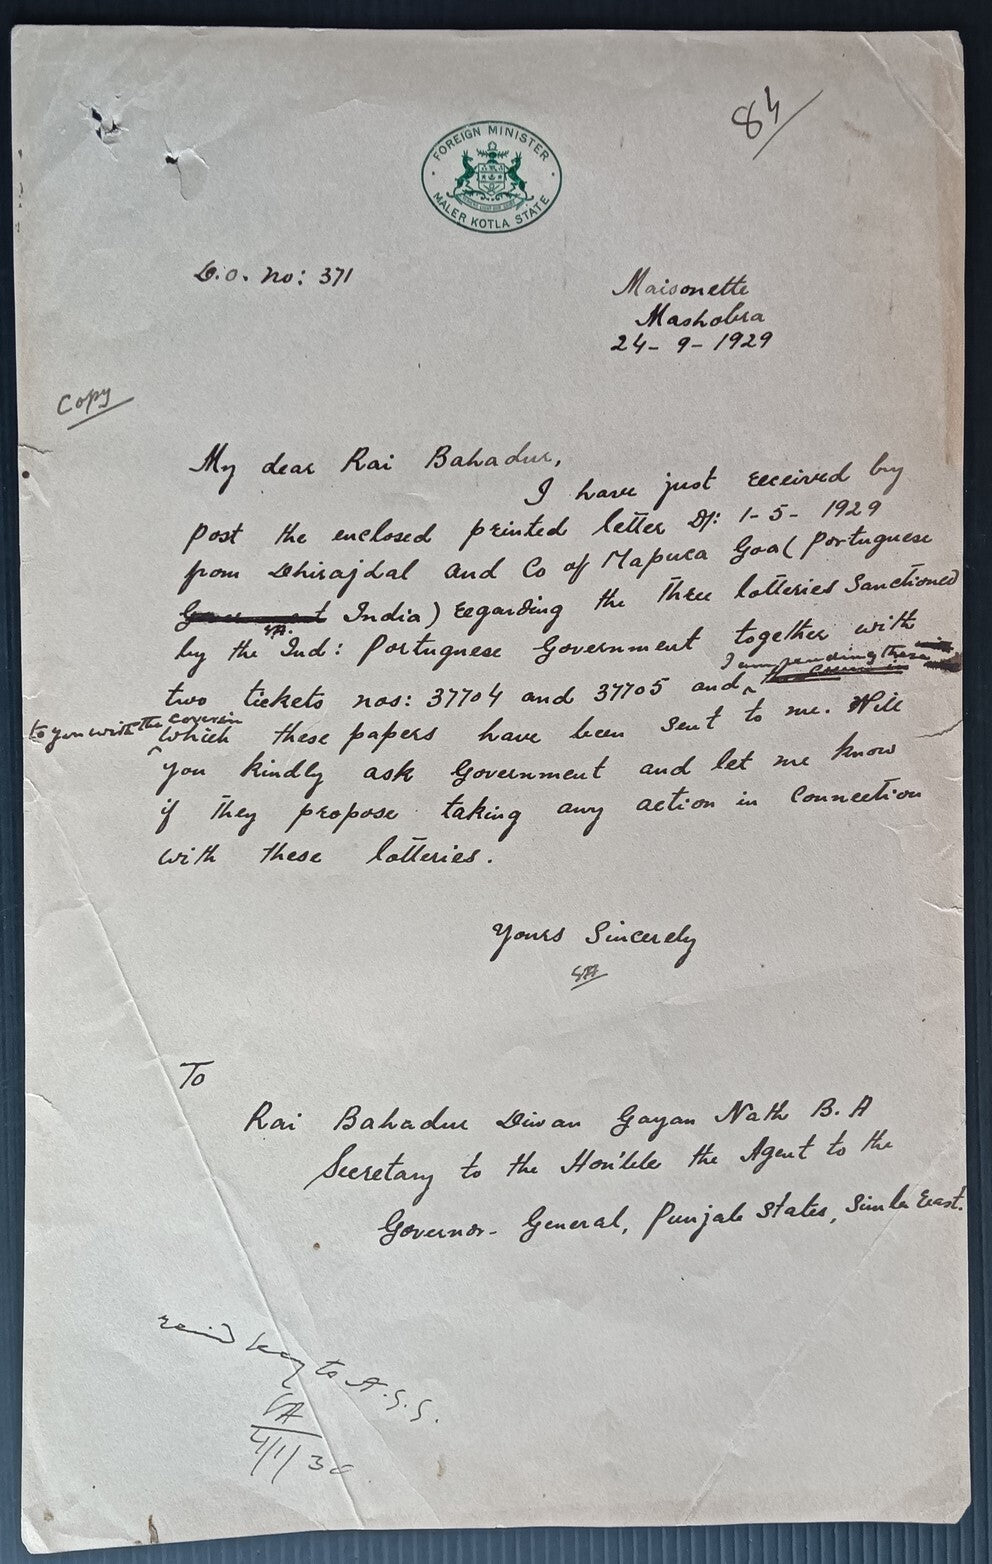 84
FOREIGN MINISTER
MALER KOTLA STATE
D.O. No: 371
Maisonette
Mashobra
24-9-1929
Copy
My dear Rai Bahadur,
I have just received by
post the enclosed printed letter Dt: 1-5-1929
from Dhirajlal and Co of Mapuca Goa (Portuguese
Government India) regarding the three lotteries Sanctioned
by the Ind: Portuguese Government together with
I am sending these
two tickets nos: 37704 and 37705 and
to you with the cover in
which these papers have been sent to me. Will
you kindly ask Government and let me know
if they propose taking any action in connection
with these lotteries.
Yours Sincerely
To
Rai Bahadur Diwan Gayan Nath B.A
Secretary to the Hon'ble the Agent to the
Governor-General, Punjab States, Simla East.
to A.G.G.
4/1/30